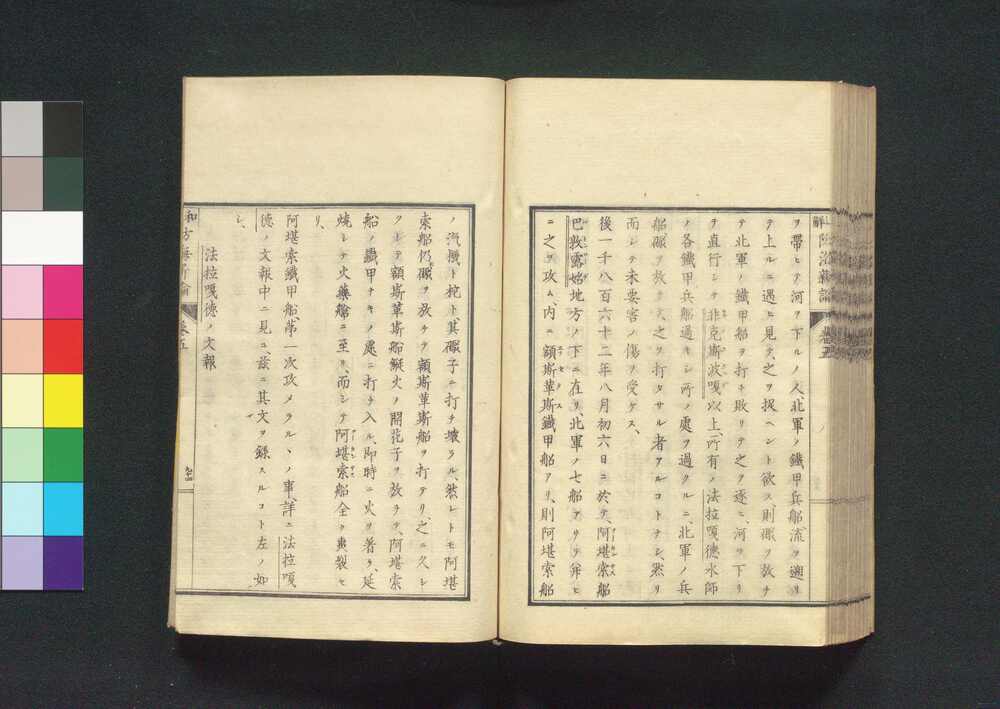 ヲ帶ヒテ河ヲ下ルノ人、北軍ノ鐵甲兵船流ヲ遡リ
テ上ルニ遇ヒ見テ、之ヲ捉ヘント欲ス、則礮ヲ放チ
テ北軍ノ鐵甲船ヲ打チ敗リテ之ヲ逐ヒ、河ヲ下リ
テ直行シテ非克斯波嘎以上、所有ノ法拉嘎德水師
ノ各鐵甲兵船過キシ所ノ處ヲ過クルニ、北軍ノ兵
船礮ヲ放ク之ヲ打タサル者アルコトナシ、然リ
而シテ未要害ノ傷ヲ受ケス、
後一千八百六十二年八月初六日ニ於テ、阿堪索船
巴敦露始地方ノ下ニ在リ、北軍ノ七船アリテ幷ヒ
ニ之ヲ攻ム、内ニ額斯華斯鐵甲船アリ、則阿堪索船
ノ汽機ト柁ト、其礮子ニ打チ壞ラル、然レトモ阿堪
索船仍礮ヲ放チテ額斯華斯船ヲ打テリ、之ニ久シ
クシテ額斯華斯船縱火ノ開花子ヲ放ラテ、阿堪索
船ノ鐵甲ナキノ處ニ打チ入ル、即時ニ火ヲ著ケ、延
燒シテ火藥艙ニ至リ、而シテ阿堪索船全ク爽裂セ
リ、
阿堪索鐵甲船、第一次攻メラルヽノ事、詳ニ法拉嘎
德ノ文報中ニ見ユ、茲ニ其文ヲ錄スルコト左ノ如
シ、
法拉嘎德ノ文報
卷五